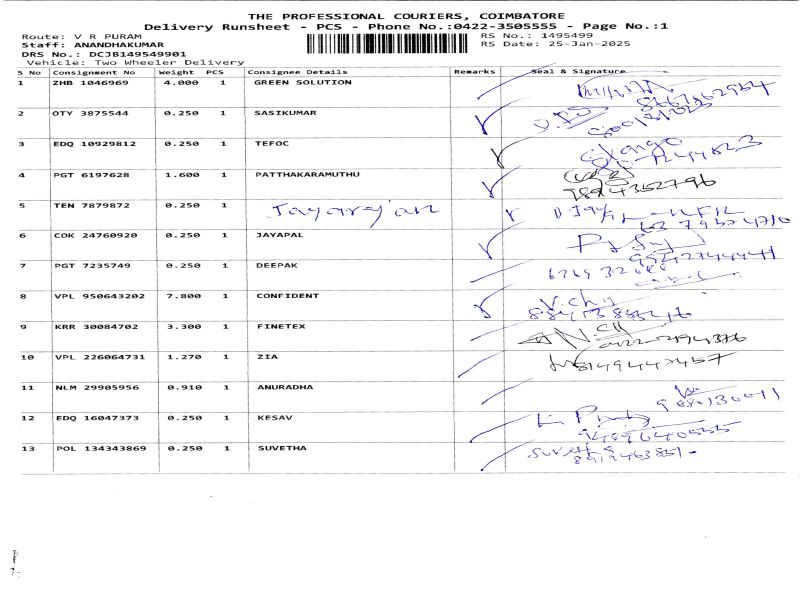 THE PROFESSIONAL COURIERS, COIMBATORE
Delivery Runsheet - PCS - Phone No.:0422-3505555 - Page No.:1
Route: V R PURAM
RS No.: 1495499
Staff: ANANDHAKUMAR
RS Date: 25-Jan-2025
DRS No.: DCJB149549901
Vehicle: Two Wheeler Delivery
S No Consignment No Weight PCS Consignee Details Remarks Seal & Signature
1 ZHB 1046969 4.000 1 GREEN SOLUTION
2 OTY 3875544 0.250 1 SASIKUMAR
3 EDQ 10929812 0.250 1 TEFOC
4 PGT 6197628 1.600 1 PATTHAKARAMUTHU
7894352796
5 TEN 7879872 0.250 1 Jayarajan
6 COK 24760920 0.250 1 JAYAPAL
7 PGT 7235749 0.250 1 DEEPAK
8 VPL 950643202 7.800 1 CONFIDENT
9 KRR 30084702 3.300 1 FINETEX
10 VPL 226064731 1.270 1 ZIA
11 NLM 29905956 0.910 1 ANURADHA
12 EDQ 16047373 0.250 1 KESAV
9489640555
13 POL 134343869 0.250 1 SUVETHA